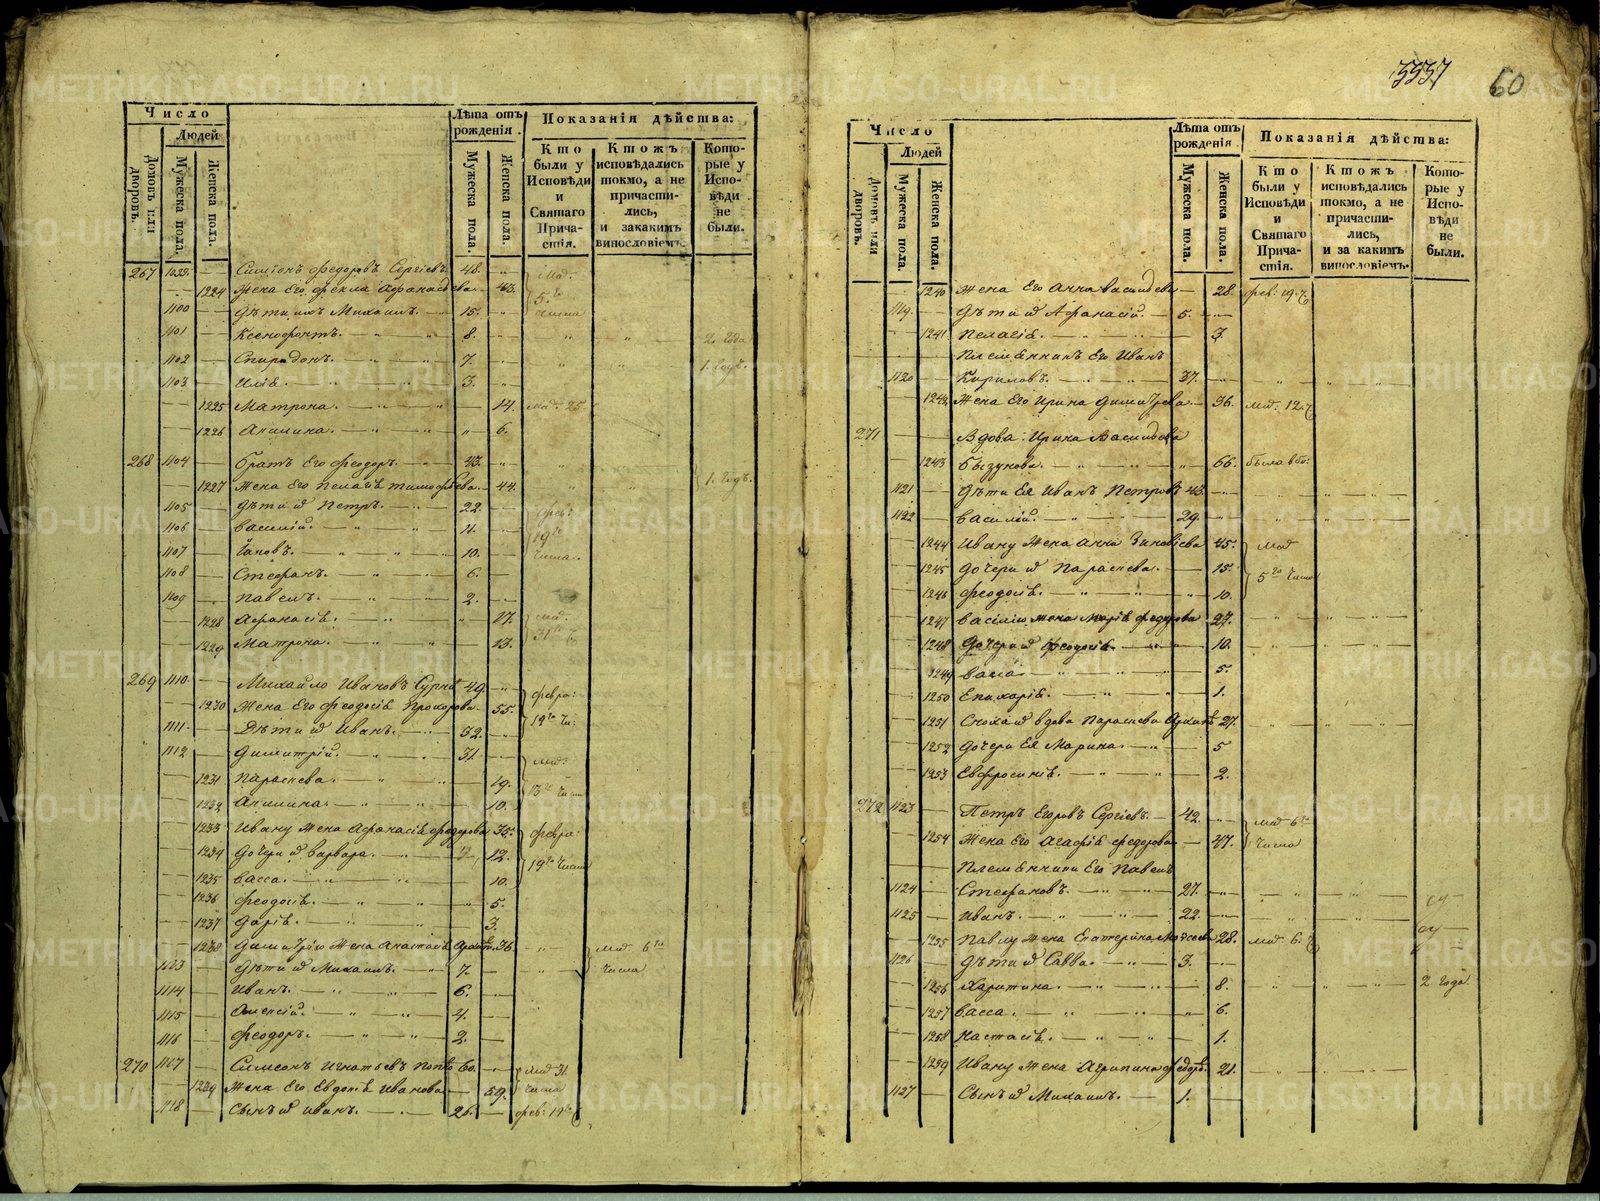 Число
Людей
Домовъ или дворовъ.
Мужеска пола.
Женска пола.
Лѣта отъ рожденія.
Мужеска пола.
Женска пола.
Показанія дѣйства:
Кто были у Исповѣди и Святаго Причастія.
Ктожъ исповѣдались токмо, а не причастились, и закакимъ винословіемъ.
Которые у Исповѣди не были.
267 1099. Симеонъ Федоровъ Сергіевъ. 48.
1224 Жена Его Фекла Афанасьева 43. 5го числа
1100 Дѣти ихъ Михаилъ. 15.
1101 Ксенофонтъ. 8. 2. года
1102 Спиридонъ. 7. 1. годъ.
1103 Илія. 3.
1225 Матрона. 14. 25
1226 Акилина. 6.
268 1104 Братъ Его Феодоръ. 43. 1. годъ.
1227 Жена Его Пелагѣя Тимофѣева. 44.
1105 Дѣти их Петръ. 22. фев:
1106 Василій. 11. 19го
1107 Іаковъ. 10. числа.
1108 Стефанъ. 6.
1109 Павелъ. 2.
1228 Афанасія. 17.
1229 Матрона. 13. 31го
269 1110 Михайло Ивановъ 49.
1230 Жена Его Феодосія Прохорова. 55. февра: 19го Чи:
1111 Дѣти их Иванъ. 32.
1112 Димитрій. 31.
1231 Параскева. 19. 13го числа
1232 Акилина. 10.
1233 Ивану Жена Афанасія Федорова 35. февра:
1234 Дочери их Варвара. 12. 19го числа
1235 Васса. 10.
1236 Феодосія. 5.
1237 Дарія. 3.
1238 Димитрію Жена Анастасія 36 6го
1113 Дѣти их Михаилъ. 7. числа
1114 Иванъ. 6.
1115 Алексій. 4.
1116 Феодоръ. 2.
270 1117 Симеонъ Игнатьевъ 60. 31.
1239 Жена Его Евдокія Иванова 59. числа
1118 Сынъ их Иванъ. 26. фев: 19го
60
Число
Людей
Домовъ или дворовъ.
Мужеска пола.
Женска пола.
Лѣта отъ рожденія
Мужеска пола.
Женска пола.
Показанія дѣйства:
Кто были у Исповѣди и Святаго Причастія.
Ктожъ исповѣдались токмо, а не причастились, и за какимъ винословіемъ.
Которые у Исповѣди не были.
1240 Жена Его Анна Васильева 28. фев: 19.
1119. Дѣти их Афанасій. 5.
1241 Пелагія. 3.
Племянникъ Его Иванъ
1120 Кириловъ. 37.
1242 Жена Его Ирина Димитрева 36. 12.
271 Вдова Ирина Васильева
1243 66. была
1121 Дѣти Ея Иванъ Петровъ 43.
1122 Василій. 29.
1244 Ивану Жена Анна Зиновіева 45.
1245 Дочери их Параскева. 15. 5го числа
1246 Феодосія. 10.
1247 Василію жена Марія Федорова 27.
1248 Дочери их Феодосія 10.
1249 Васса 5.
1250 Епихарія. 1.
1251 Сноха их вдова Параскева 27.
1252 Дочери Ея Марина. 5
1253 Евфросинія. 2.
272 1123 Петръ Егоровъ Сергіевъ. 42. 6го
1254 Жена Его Агафія Федорова 47. числа
Племянники Его Павелъ
1124 Стефановъ. 27.
1125 Иванъ. 22.
1255 Павлу Жена Екатерина 28. 6.
1126 Дѣти их Савва. 3.
1256 Харитина. 8. 2 года
1257 Васса. 6.
1258 Настасія. 1.
1259 Ивану Жена Агрипина 21.
1127 Сынъ их Михаилъ. 1.
METRIKI.GASO-URAL.RU